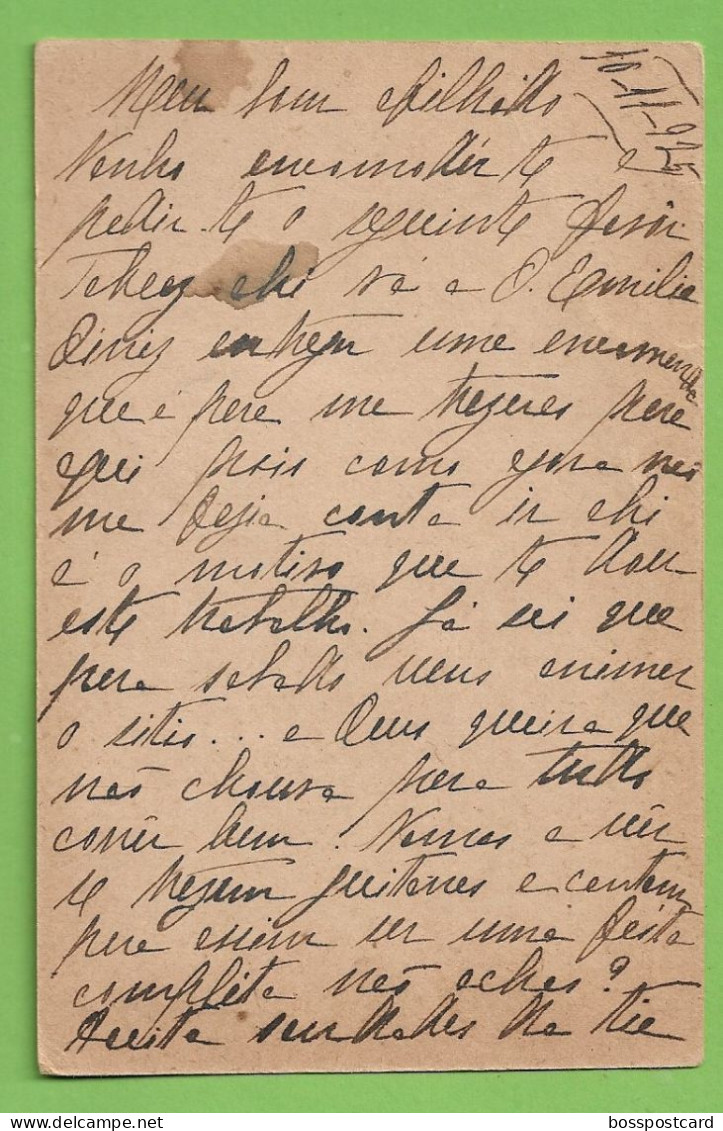 10-11-925
Meu bom afilhado
Venho encomodar-te e
pedir-te o seguinte
Talvez ahi vá a D. Emilia
Diniz entregar uma encomenda
que é para me trazeres para
qui pois como agora não
me fazia conta ir ahi
é o motivo que te dou
este trabalho. Já sei que
para sabado vens animar
o sitio... e Deus queira que
não chouva para tudo
correr bem. Vamos a ver
se trazem guitarras e cantam
para assim ser uma festa
completa não achas?
Aceita saudades da tia
bosspostcard